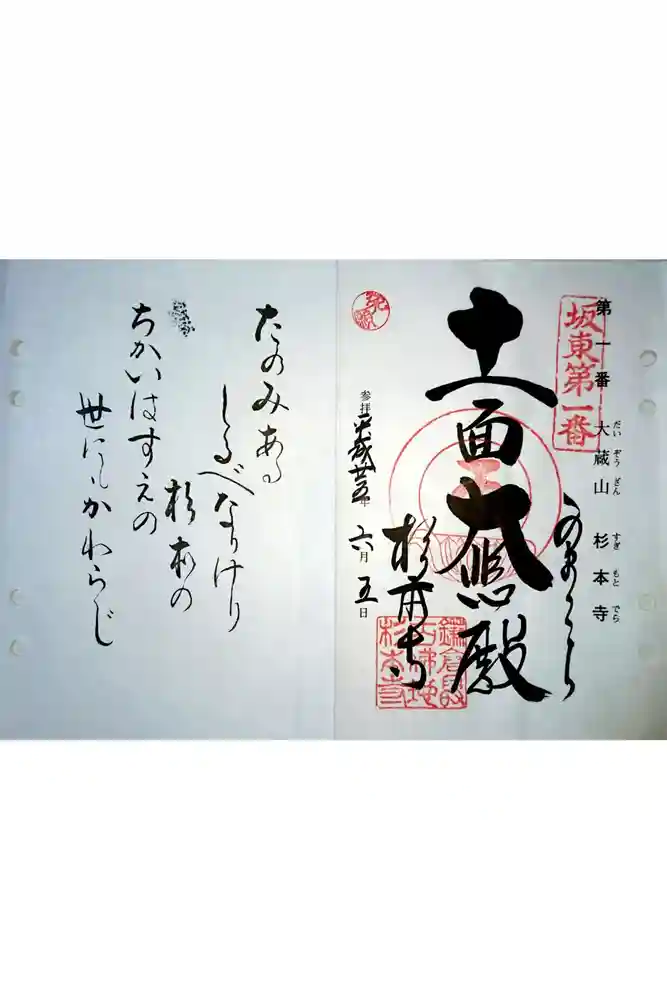 第一番 大蔵山 杉本寺
だいぞうざん すぎもとでら
坂東第一番
十一面大悲殿
杉本寺
参拝平成廿五年 六月 五日
たのみある
しるべなりけり
杉本の
ちかいはすえの
世にもかわらじ